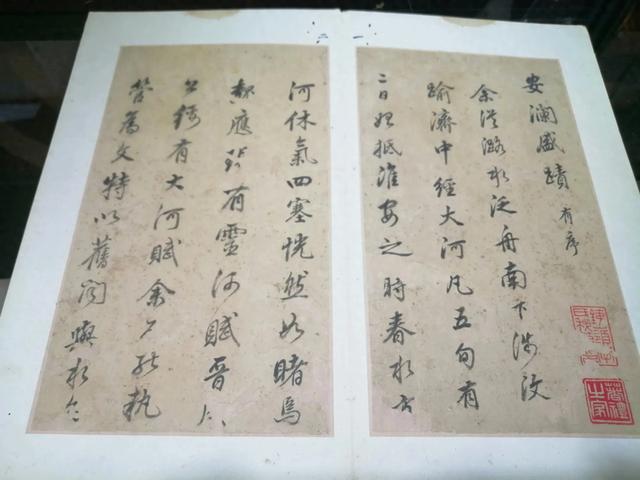 安瀾盛蹟 有序
余從潞水泛舟南下涉汶
踰濟中經大河凡五旬有
二日始抵淮安之時春水方
河休氣四塞恍然如睹焉
應瑒有靈河賦晉
公綏有大河賦余不能執
管為文特以舊聞與